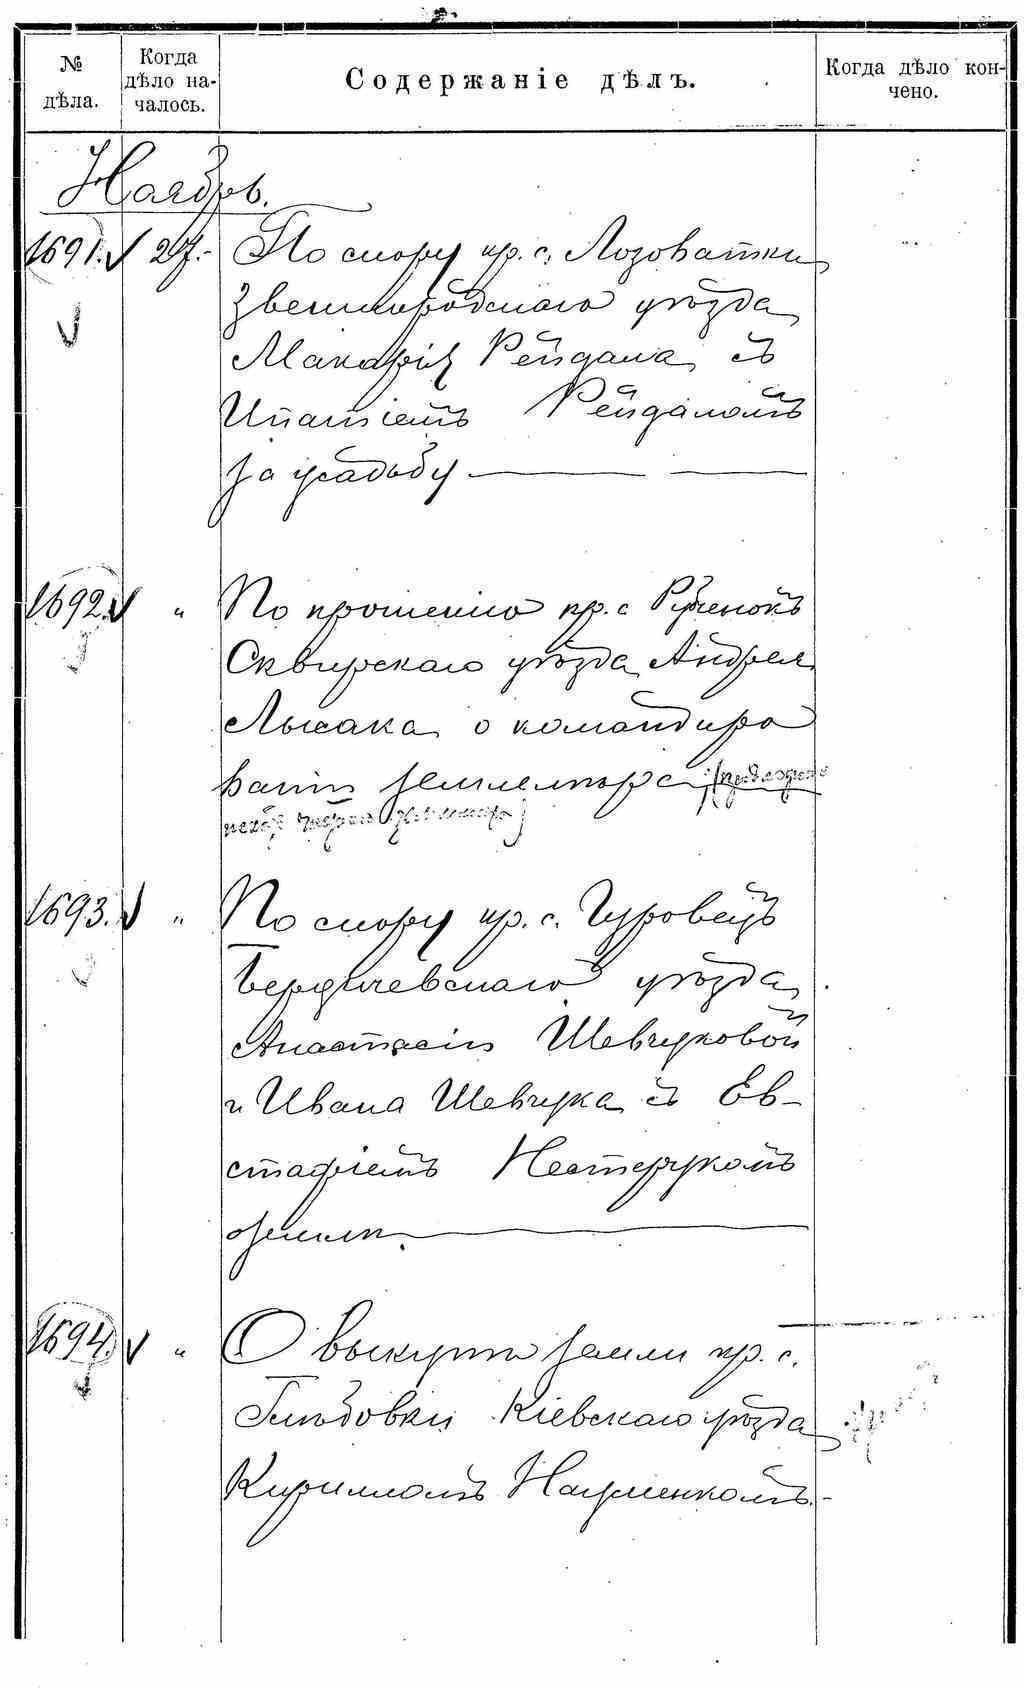 № дѣла.
Когда дѣло на-
чалось.
Содержаніе дѣлъ.
Когда дѣло кон-
чено.
Ноябрь.
1691. 27. По спору кр. с. Лозоватки
Звенигородскаго уѣзда
Макарія Рейдала съ
Ипатіемъ Рейдаломъ
за усадьбу
1692. " По прошенію кр. с. Рученокъ
Сквирскаго уѣзда Андрея
Лысака о командиро
ваніи землемѣра
1693. " По спору кр. с. Гуровецъ
Бердичевскаго уѣзда
Анастасіи Шевчуковой
и Ивана Шевчука съ Ев-
стафіемъ Нестерукомъ
о землѣ.
1694. " О выкупѣ земли кр. с.
Глѣбовки Кіевскаго уѣзда
Кирилломъ Науменкомъ.-